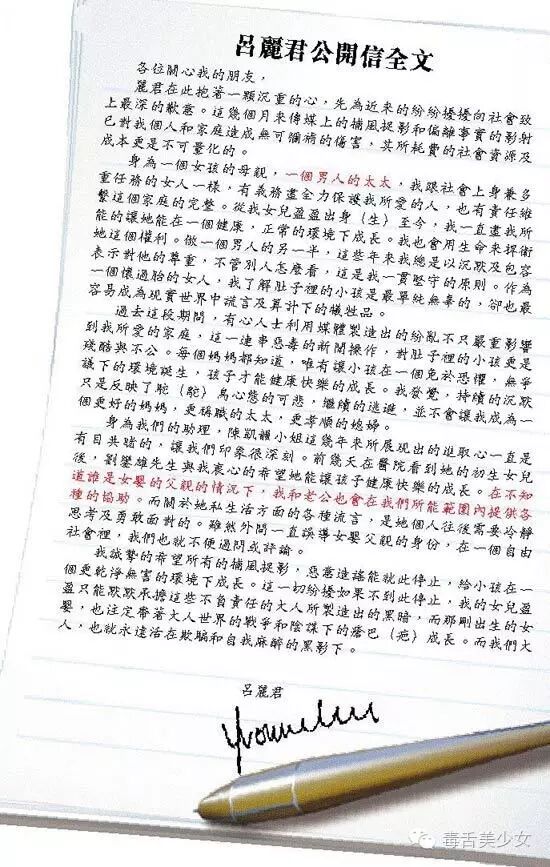 呂麗君公開信全文
各位關心我的朋友，
麗君在此抱著一顆沉重的心，先為近來的紛紛擾擾向社會致
上最深的歉意。這幾個月來傳媒上的捕風捉影和偏離事實的影射
已對我個人和家庭造成無可彌補的傷害，其所耗費的社會資源及
成本更是不可量化的。
身為一個女孩的母親，一個男人的太太，我跟社會上身兼多
重任務的女人一樣，有義務盡全力保護我所愛的人，也有責任維
繫這個家庭的完整。從我女兒盈盈出身（生）至今，我一直盡我所
能的讓她能在一個健康，正常的環境下成長。我也會用生命來捍衛
她這個權利。做一個男人的另一半，這些年來我總是以沉默及包容
表示對他的尊重，不管別人怎麼看，這是我一貫堅守的原則。作為
一個懷過胎的女人，我了解肚子裡的小孩是最單純無毒的，卻也最
容易成為現實世界中謊言及算計下的犧牲品。
過去這段期間，有心人士利用媒體製造出的紛亂不只嚴重影響
到我所愛的家庭，這一連串惡毒的新聞操作，對肚子裡的小孩更是
殘酷與不公。每個媽媽都知道，唯有讓小孩在一個免於恐懼，無爭
議下的環境誕生，孩子才能健康快樂的成長。我發覺，持續的沉默
只是反映了駝（鴕）鳥心態的可悲，繼續的逃避，並不會讓我成為一
個更好的媽媽，更稱職的太太，更孝順的媳婦。
身為我們的助理，陳凱韻小姐這幾年來所展現出的進取心一直是
有目共睹的，讓我們印象很深刻。前幾天在醫院看到她的初生女兒
後，劉鑾雄先生與我衷心的希望她能讓孩子健康快樂的成長。在不知
道誰是女嬰的父親的情況下，我和老公也會在我們所能範圍內提供各
種的協助。而關於她私生活方面的各種流言，是她個人往後需要冷靜
思考及勇敢面對的。雖然外間一直誤導女嬰父親的身份，在一個自由
社會裡，我們也就不便過問或評論。
我誠摯的希望所有的捕風捉影，惡意造謠能就此停止，給小孩在一
個更乾淨無害的環境下成長。這一切紛擾如果不到此停止，我的女兒盈
盈只能默默承擔這些不負責任的大人所製造出的黑暗，而那剛出生的女
嬰，也注定帶著大人世界的戰爭和陰謀下的瘡巴（疤）成長。而我們大
人，也就永遠活在欺騙和自我麻醉的黑影下。
呂麗君
毒舌美少女